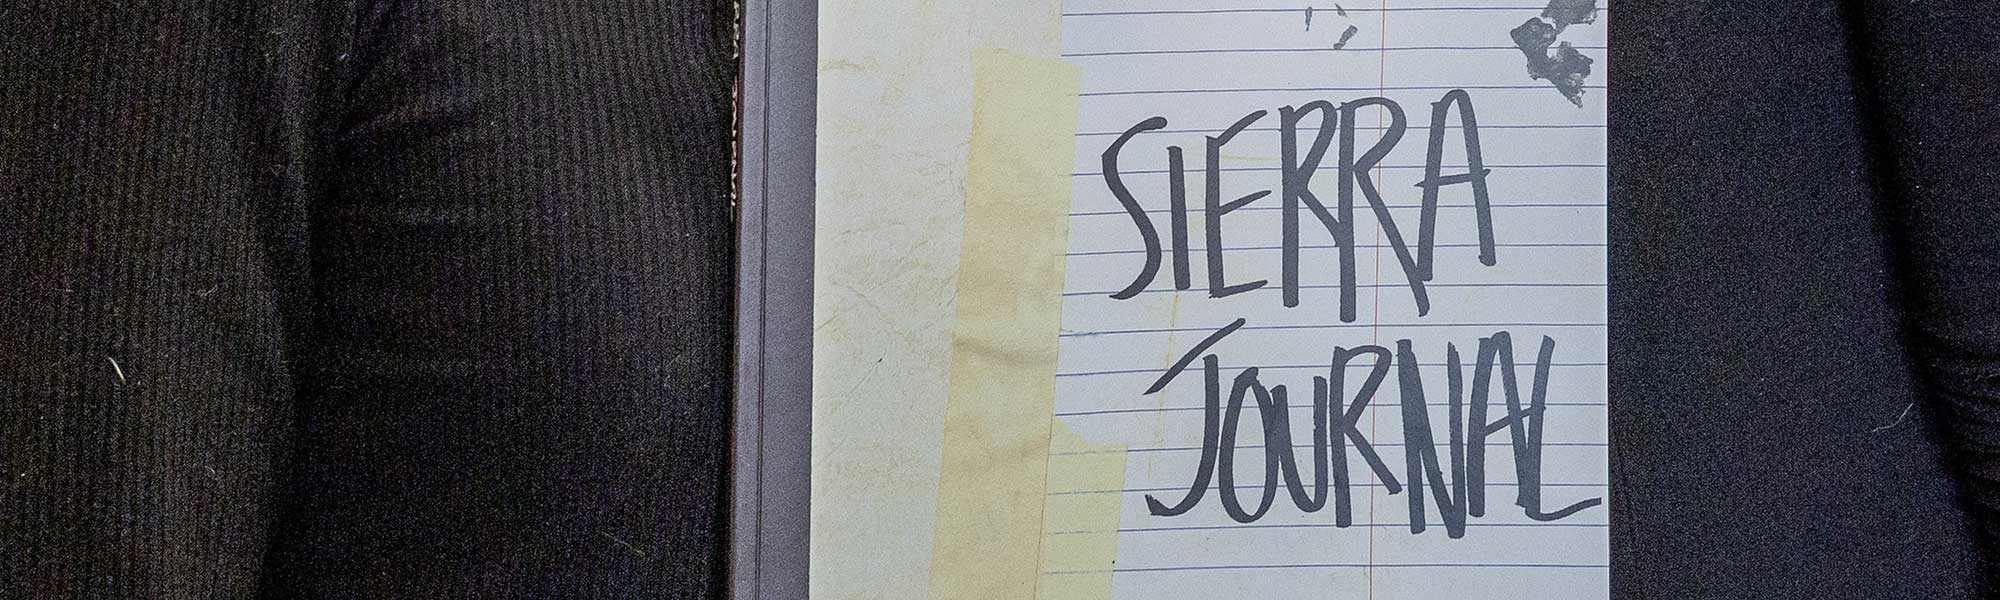 SIERRA
JOURNAL